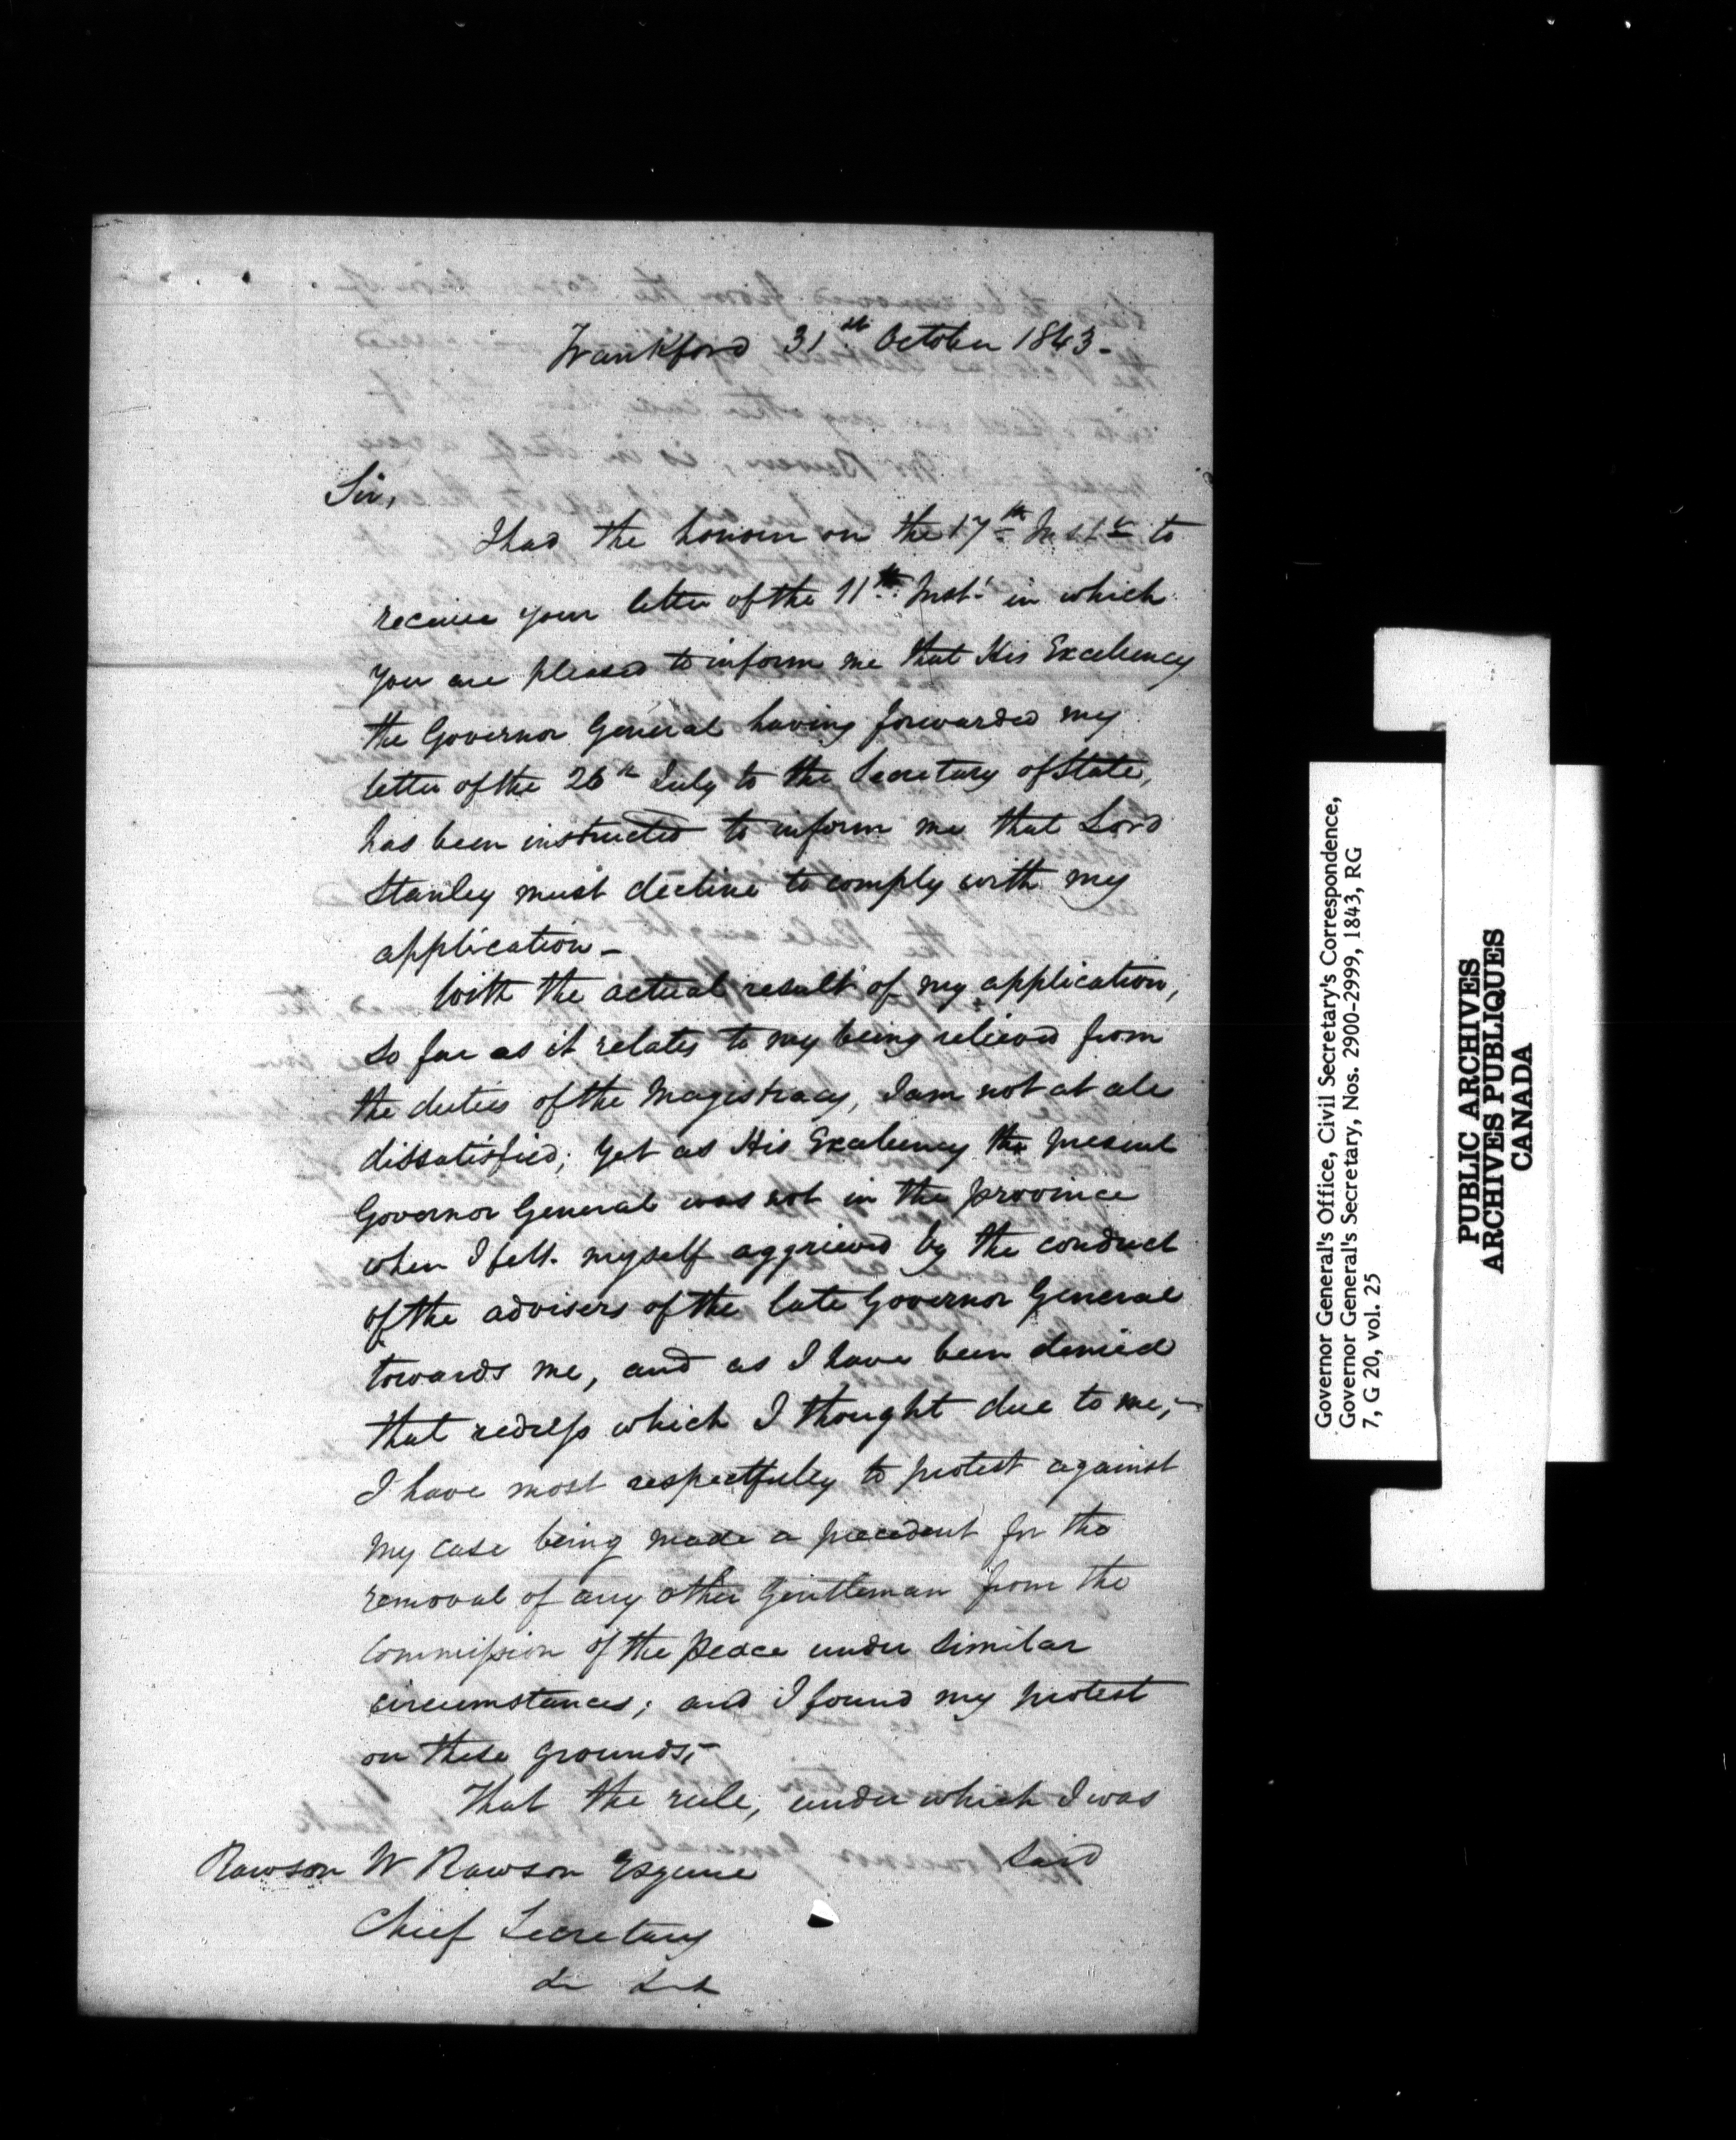 Frankford 31st October 1843-
Sir,
I had the honour on the 17th Instt to
receive your letter of the 11th Inst: in which
you are pleased to inform me that His Excellency
the Governor General having forwarded my
letter of the 26th July to the Secretary of State,
has been instructed to inform me that Lord
Stanley must decline to comply with my
application-
With the actual result of my application,
so far as it relates to my being relieved from
the duties of the Magistracy, I am not at all
dissatisfied; yet as His Excellency the present
Governor General was not in the province
when I felt myself aggrieved by the conduct
of the advisers of the late Governor General
towards me, and as I have been denied
that redress which I thought due to me,-
I have most respectfully to protest against
my case being made a precedent for the
removal of any other Gentleman from the
Commission of the Peace under similar
circumstances; and I found my protest
on these grounds,-
That the rule, under which I was
said
Rawson W Rawson Esquire
Chief Secretary
Governor General's Office, Civil Secretary's Correspondence,
Governor General's Secretary, Nos. 2900-2999, 1843, RG
7, G 20, vol. 25
PUBLIC ARCHIVES
ARCHIVES PUBLIQUES
CANADA